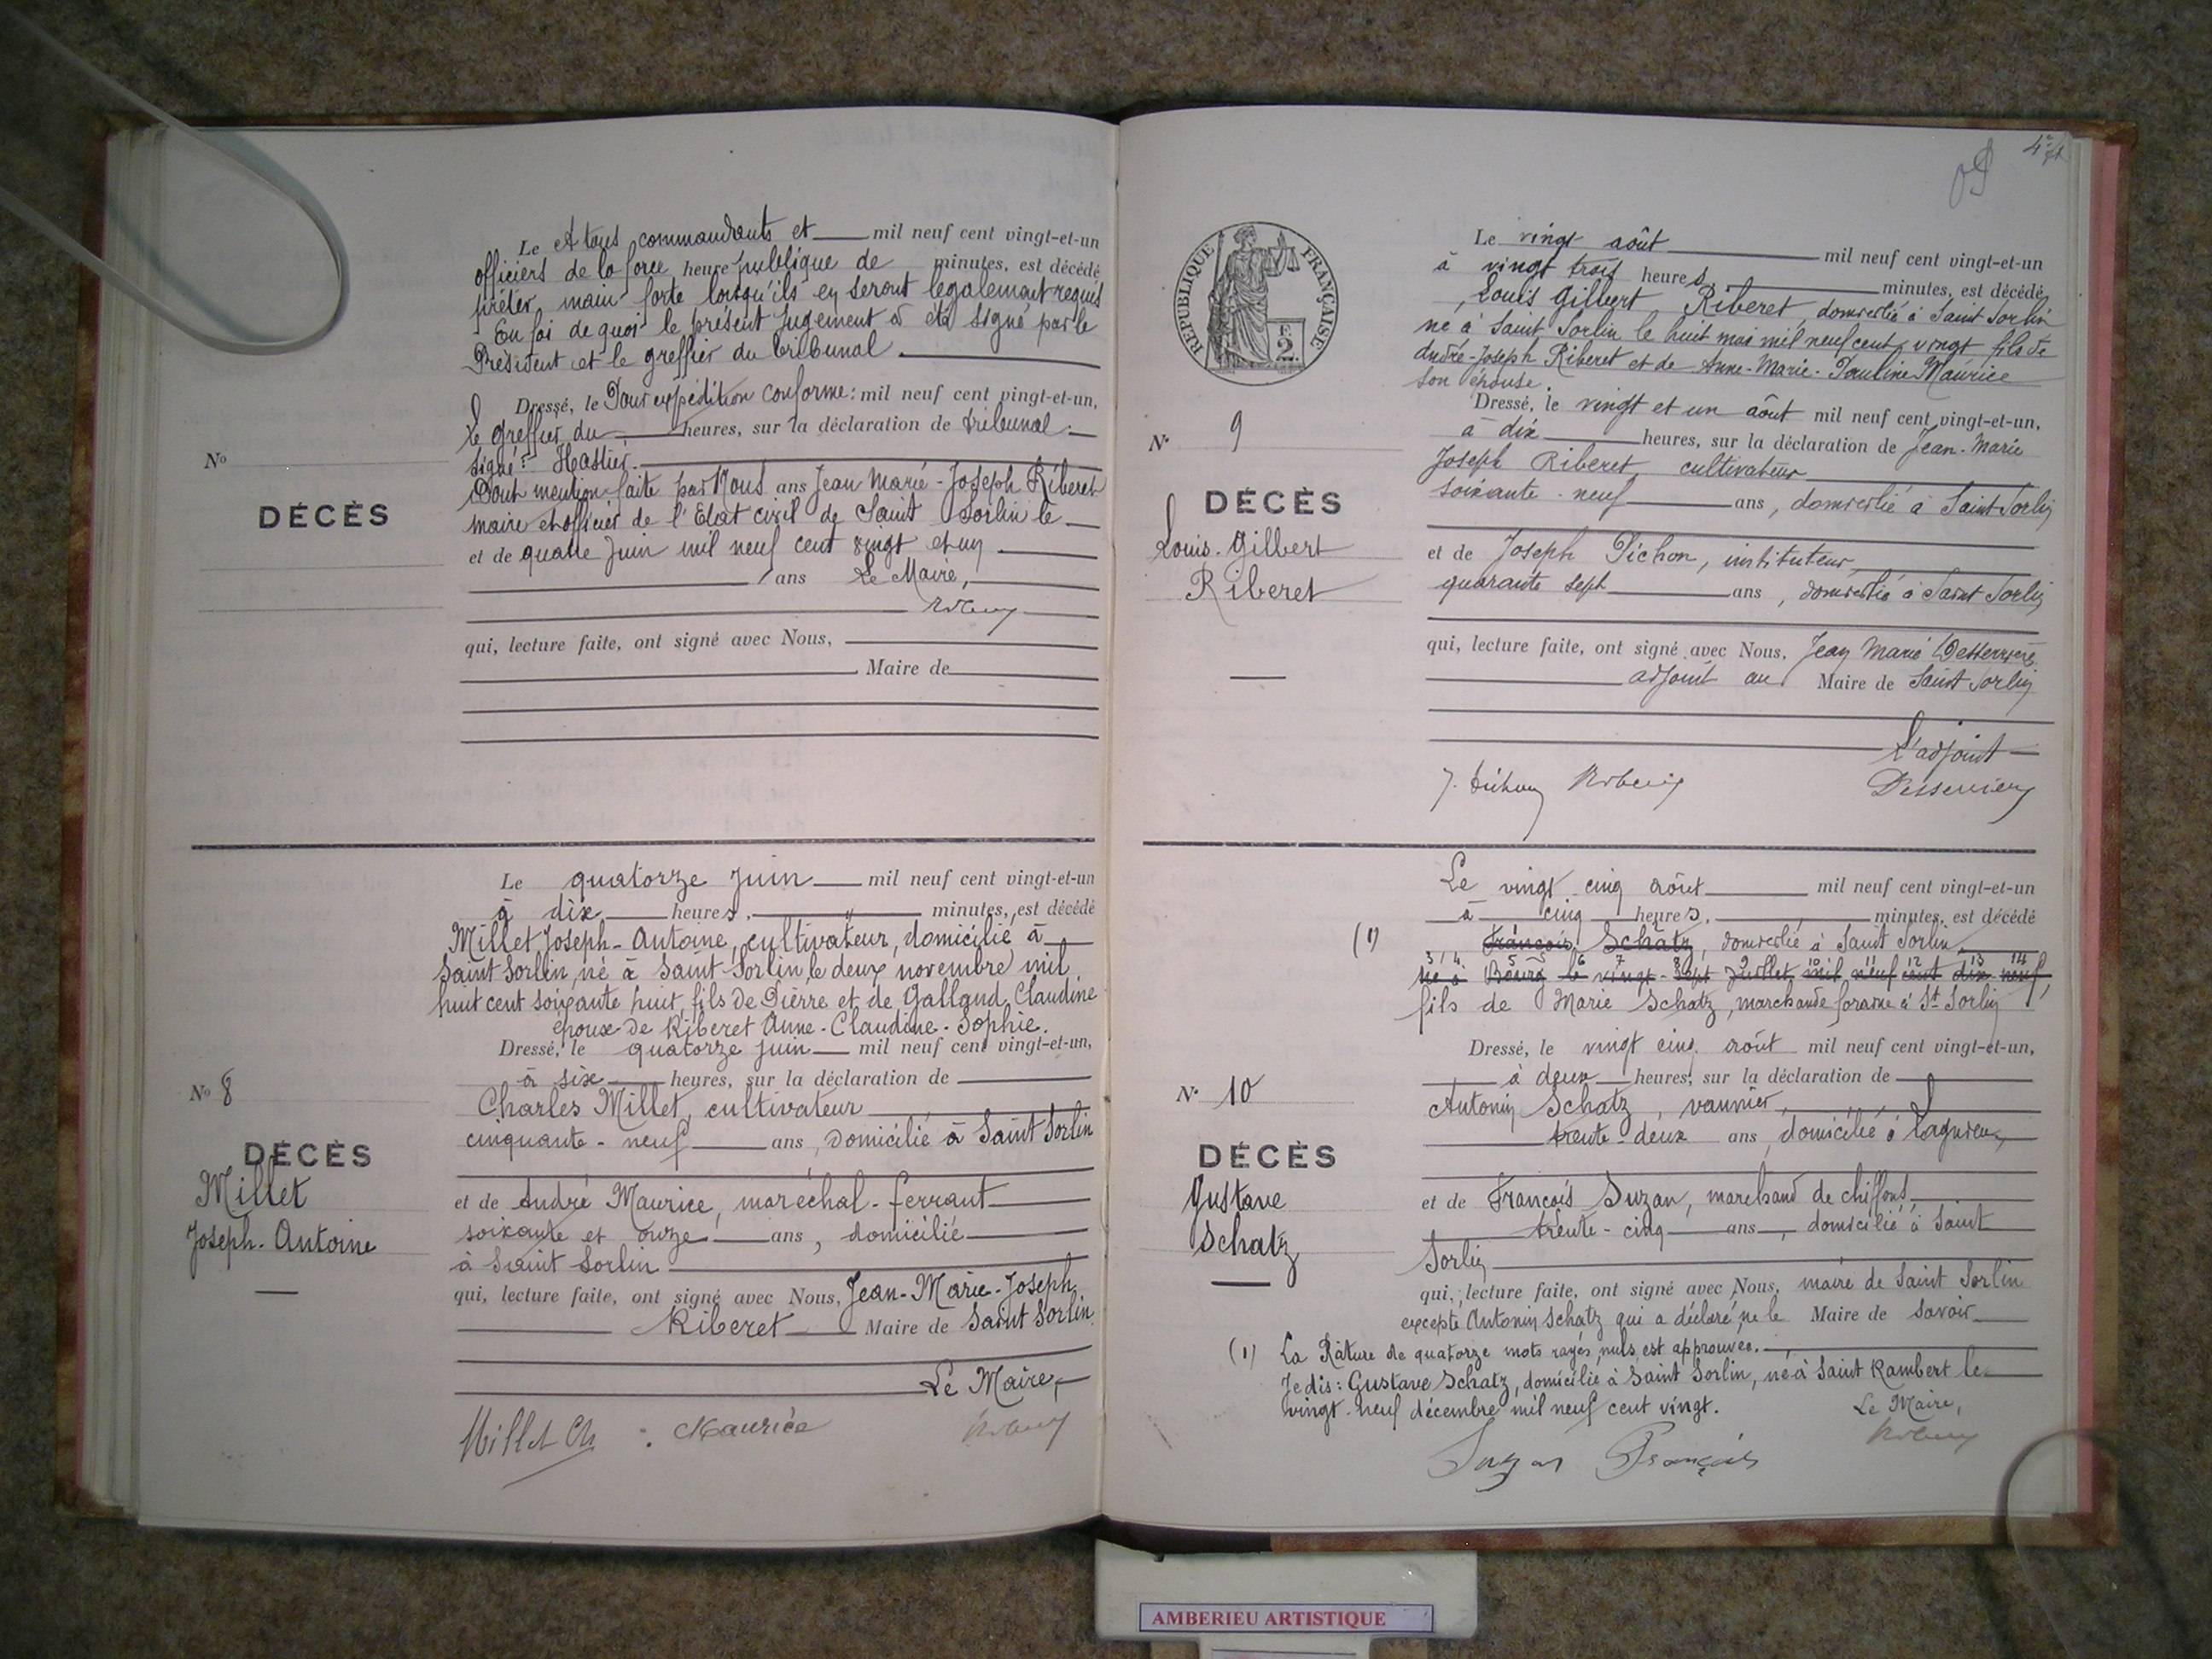 Le A tous commandants et mil neuf cent vingt-et-un
officiers de la force heure publique de minutes, est décédé
prêter main forte lorsqu'ils en seront légalement requis
En foi de quoi le présent jugement a été signé par le
Président et le greffier du tribunal.
Dressé, le Pour expédition conforme: mil neuf cent vingt-et-un,
Le greffier du heures, sur la déclaration de tribunal.
signé: Hastier.
Dont mention faite par Nous ans Jean Marie-Joseph Riberet
maire et officier de l'Etat civil de Saint Sorlin le
et de quatre juin mil neuf cent vingt et un
ans Le Maire,
qui, lecture faite, ont signé avec Nous,
Maire de
No
DÉCÈS
Le quatorze juin mil neuf cent vingt-et-un
à dix heures, minutes, est décédé
Millet Joseph-Antoine, cultivateur, domicilié à
Saint Sorlin, né à Saint-Sorlin, le deux novembre mil
huit cent soixante huit, fils de Pierre et de Galland Claudine
époux de Riberet Anne-Claudine-Sophie.
Dressé, le quatorze juin mil neuf cent vingt-et-un,
à six heures, sur la déclaration de
Charles Millet, cultivateur
cinquante-neuf ans, domicilié à Saint Sorlin
et de André Maurice, maréchal-ferrant
soixante et onze ans, domicilié
à Saint Sorlin
qui, lecture faite, ont signé avec Nous, Jean-Marie-Joseph
Riberet Maire de Saint Sorlin
Le Maire,
Millet Ch Maurice
No 8
DÉCÈS
Millet
Joseph-Antoine
4e
RÉPUBLIQUE FRANÇAISE
2
Le vingt août mil neuf cent vingt-et-un
à vingt trois heures, minutes, est décédé
Louis Gilbert Riberet, domicilié à Saint Sorlin
né à Saint Sorlin le huit mai mil neuf cent vingt fils de
André-Joseph Riberet et de Anne-Marie-Pauline Maurice
son épouse.
Dressé, le vingt et un août mil neuf cent vingt-et-un,
à dix heures, sur la déclaration de Jean-Marie
Joseph Riberet, cultivateur
soixante-neuf ans, domicilié à Saint Sorlin
et de Joseph Pichon, instituteur
quarante sept ans, domicilié à Saint Sorlin
qui, lecture faite, ont signé avec Nous, Jean Marie
adjoint au Maire de Saint Sorlin
L'adjoint
J. Pichon
No 9
DÉCÈS
Louis-Gilbert
Riberet
Le vingt cinq août mil neuf cent vingt-et-un
à cinq heures, minutes, est décédé
(1) François Schatz, domicilié à Saint Sorlin
3 4 5 6 7 8 9 10 11 12 13 14
né à Bourg le vingt-sept juillet mil neuf cent dix neuf,
fils de Marie Schatz, marchande foraine à St Sorlin
Dressé, le vingt cinq août mil neuf cent vingt-et-un,
à deux heures, sur la déclaration de
Antonin Schatz, vannier,
trente-deux ans, domicilié à Lagnieu,
et de François Suzan, marchand de chiffons
trente-cinq ans, domicilié à Saint
Sorlin
qui, lecture faite, ont signé avec Nous, maire de Saint Sorlin
excepté Antonin Schatz qui a déclaré ne le Maire de savoir
(1) La Rature de quatorze mots rayés, nuls, est approuvée.
Je dis: Gustave Schatz, domicilié à Saint Sorlin, né à Saint Rambert le
vingt-neuf décembre mil neuf cent vingt.
Le Maire,
Suzan François
No 10
DÉCÈS
Gustave
Schatz
AMBERIEU ARTISTIQUE